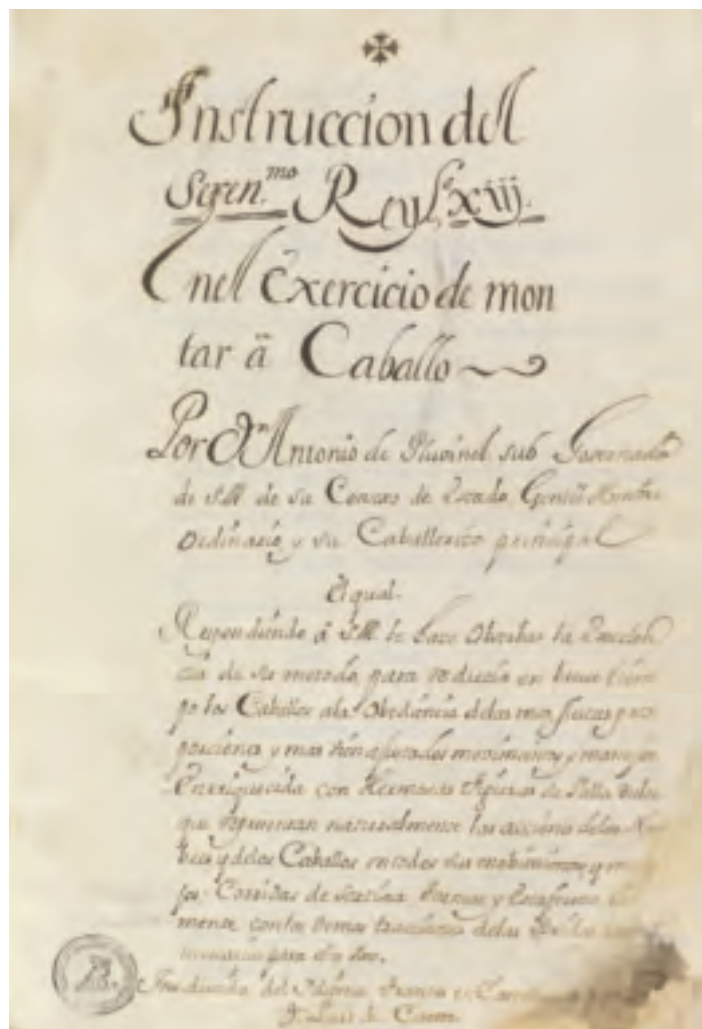 Instruccion del
Seren.mo Rey L.s xiij.
Enel Exercicio de mon
tar â Caballo
Por Dn Antonio de Pluvinel sub Governador
de S.M. de su Concexo de Estado, Gentil Hombre
Ordinario, y su Caballerizo principal
El qual.
Respondiendo â S.M. le hace observar la Excelen
cia de su metodo para reducir en breve tiem
po los Caballos ala Obediencia delas mas justas pro
porciones y mas ajustados movimientos y manejos
Enriquecida con Hermosas figuras de Talla dulce
que representan naturalmente las acciones delos Hom
bres y delos Caballos en todos sus movimientos y mane
jos. Corridas de Sortija
mente con los demas
necesarias para
Traducida del Idioma Frances en Castellano por
D. Luis de